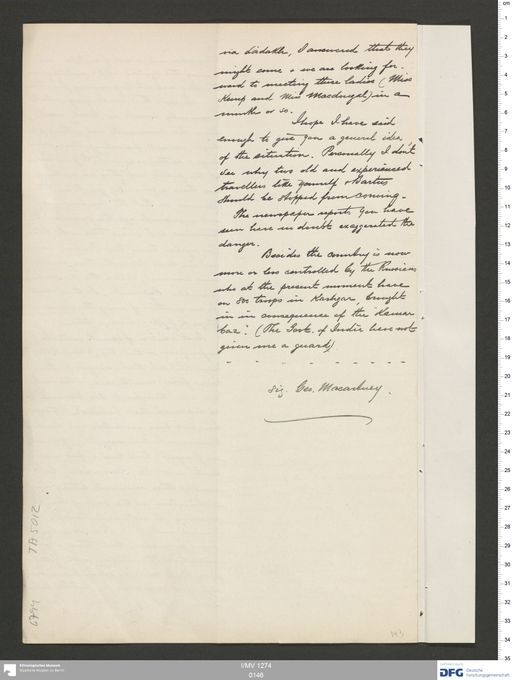 via Ladakh, I answered that they
might come & we are looking for-
ward to meeting these ladies (Miss
Kemp and Miss Macdougal) in a
month or so.
I hope I have said
enough to give you a general idea
of the situation. Personally I don't
see why two old and experienced
travellers like yourself & Bartus
should be stopped from coming.
The newspaper reports you have
seen have no doubt exaggerated the
danger.
Besides the country is now
more or less controlled by the Russians
who at the present moment have
on 800 troops in Kashgar, brought
in in consequence of the
(The Govt. of India have not
given me a guard)
sig. Geo. Macartney.
TA 5012
6794
143
Ethnologisches Museum
Staatliche Museen zu Berlin
I/MV 1274
0146
DFG
Deutsche
Forschungsgemeinschaft
cm
1
2
3
4
5
6
7
8
9
10
11
12
13
14
15
16
17
18
19
20
21
22
23
24
25
26
27
28
29
30
31
32
33
34
35